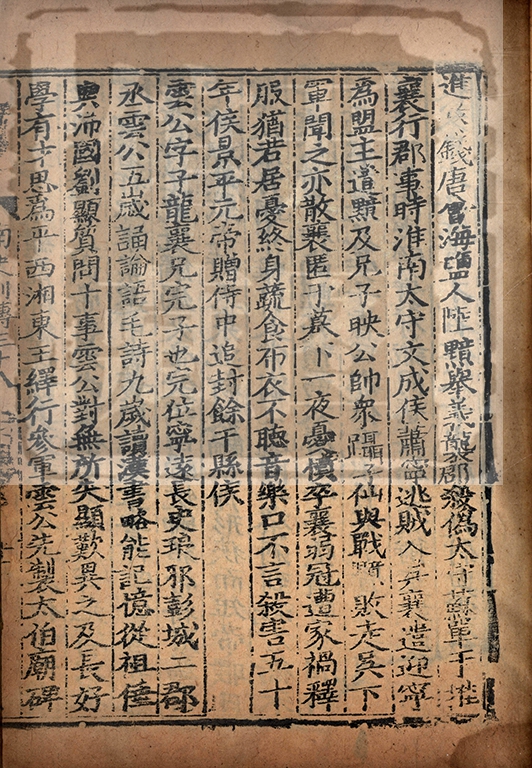 進攻錢唐會海鹽人陸黯舉義襲郡殺偽太守蘇單于推
襄行郡事時淮南太守文成侯蕭寧逃賊入吳襄遣迎寧
為盟主遣黯及兄子映公帥衆躡子仙與戰黯敗走吳下
軍聞之亦散襄匿于墓下一夜憂憤卒襄弱冠遭家禍釋
服猶若居憂終身蔬食布衣不聽音樂口不言殺害五十
年侯景平元帝贈侍中追封餘干縣侯
雲公字子龍襄兄完子也完位寧遠長史琅邪彭城二郡
丞雲公五歲誦論語毛詩九歲讀漢書略能記憶從祖倕
與沛國劉顯質問十事雲公對無所失顯歎異之及長好
學有才思為平西湘東王繹行參軍雲公先製太伯廟碑
南史列傳三十八